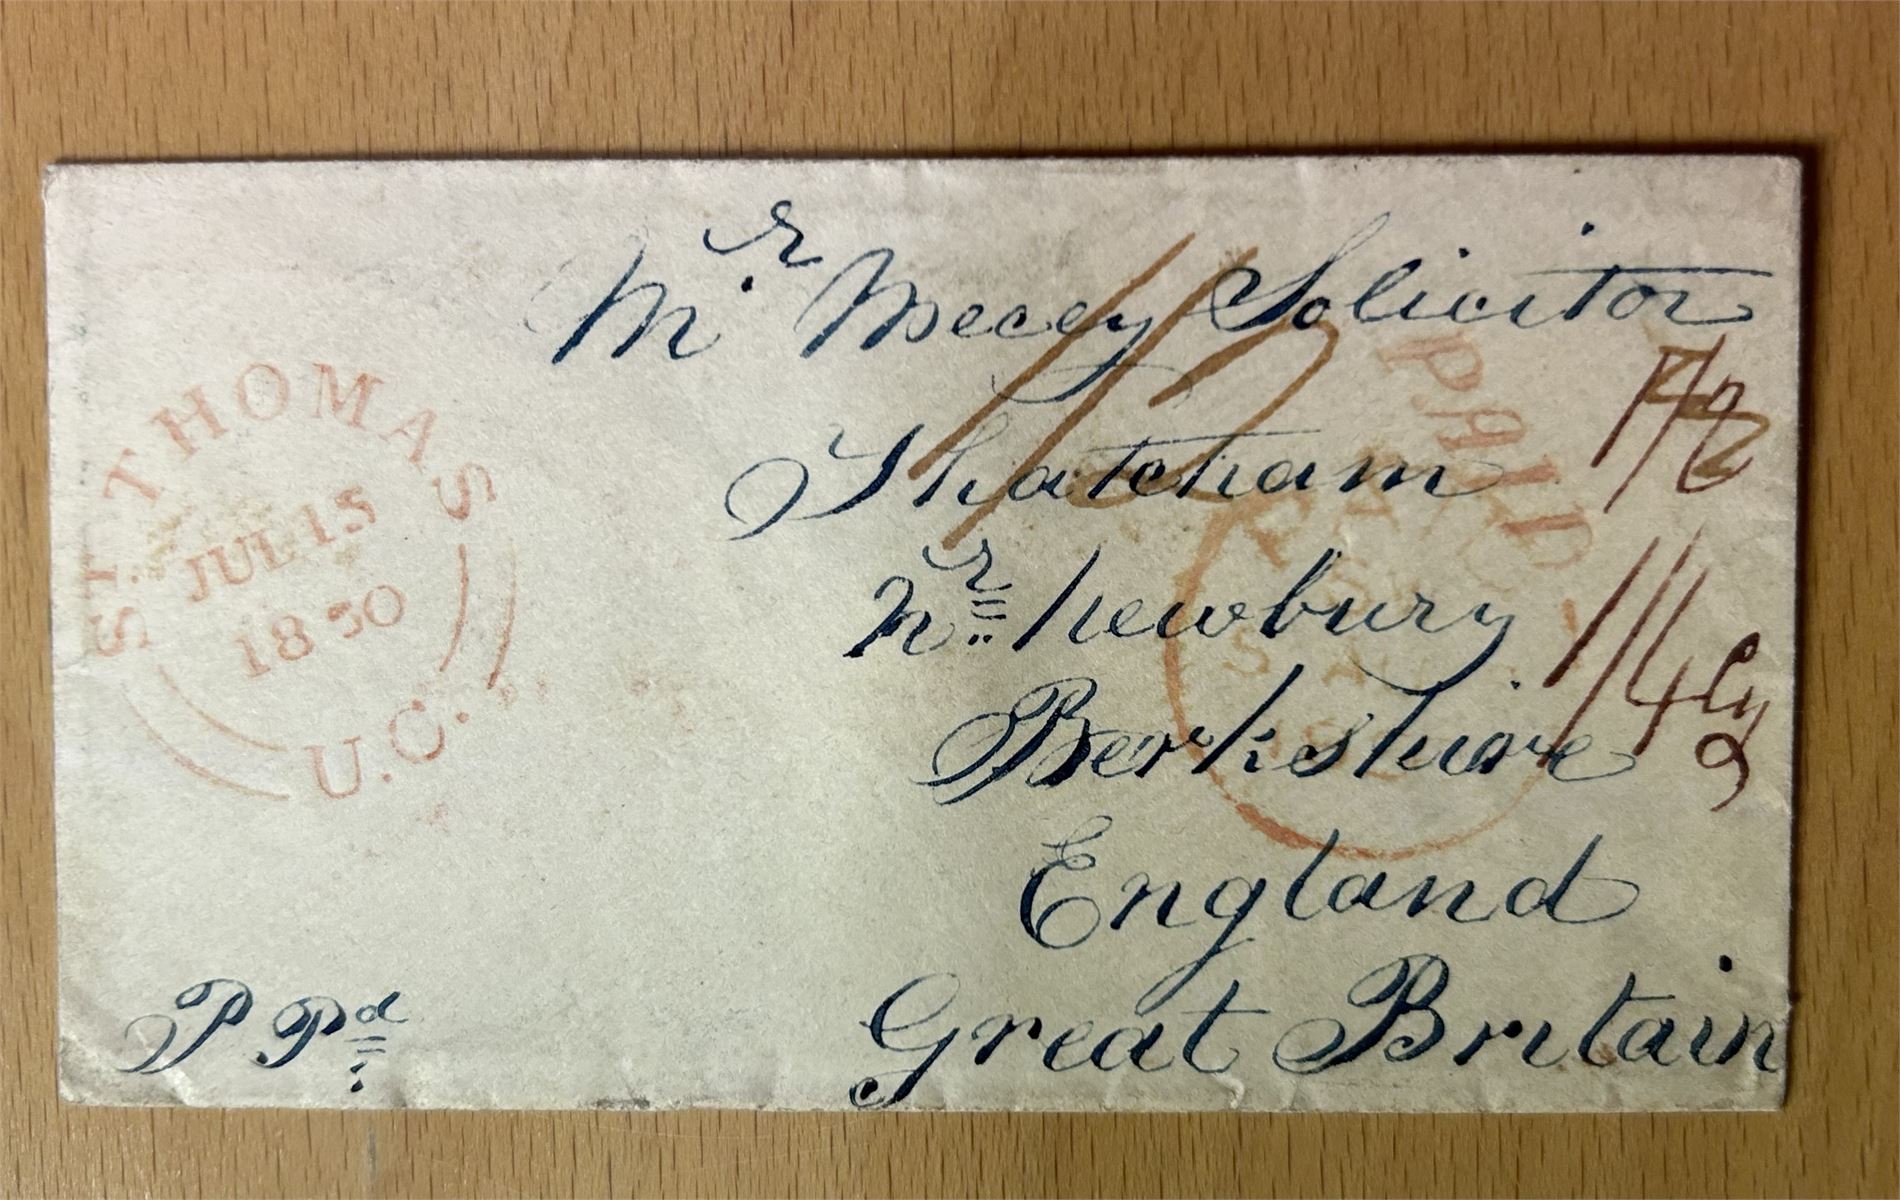 Mr. Mecey Solicitor
Thatcham
Nr. Newbury
Berkshire
England
Great Britain
P. Pd.
ST. THOMAS
JUL 15
1850
U.C.
PAID
1/2
1/2
1/4 Cy